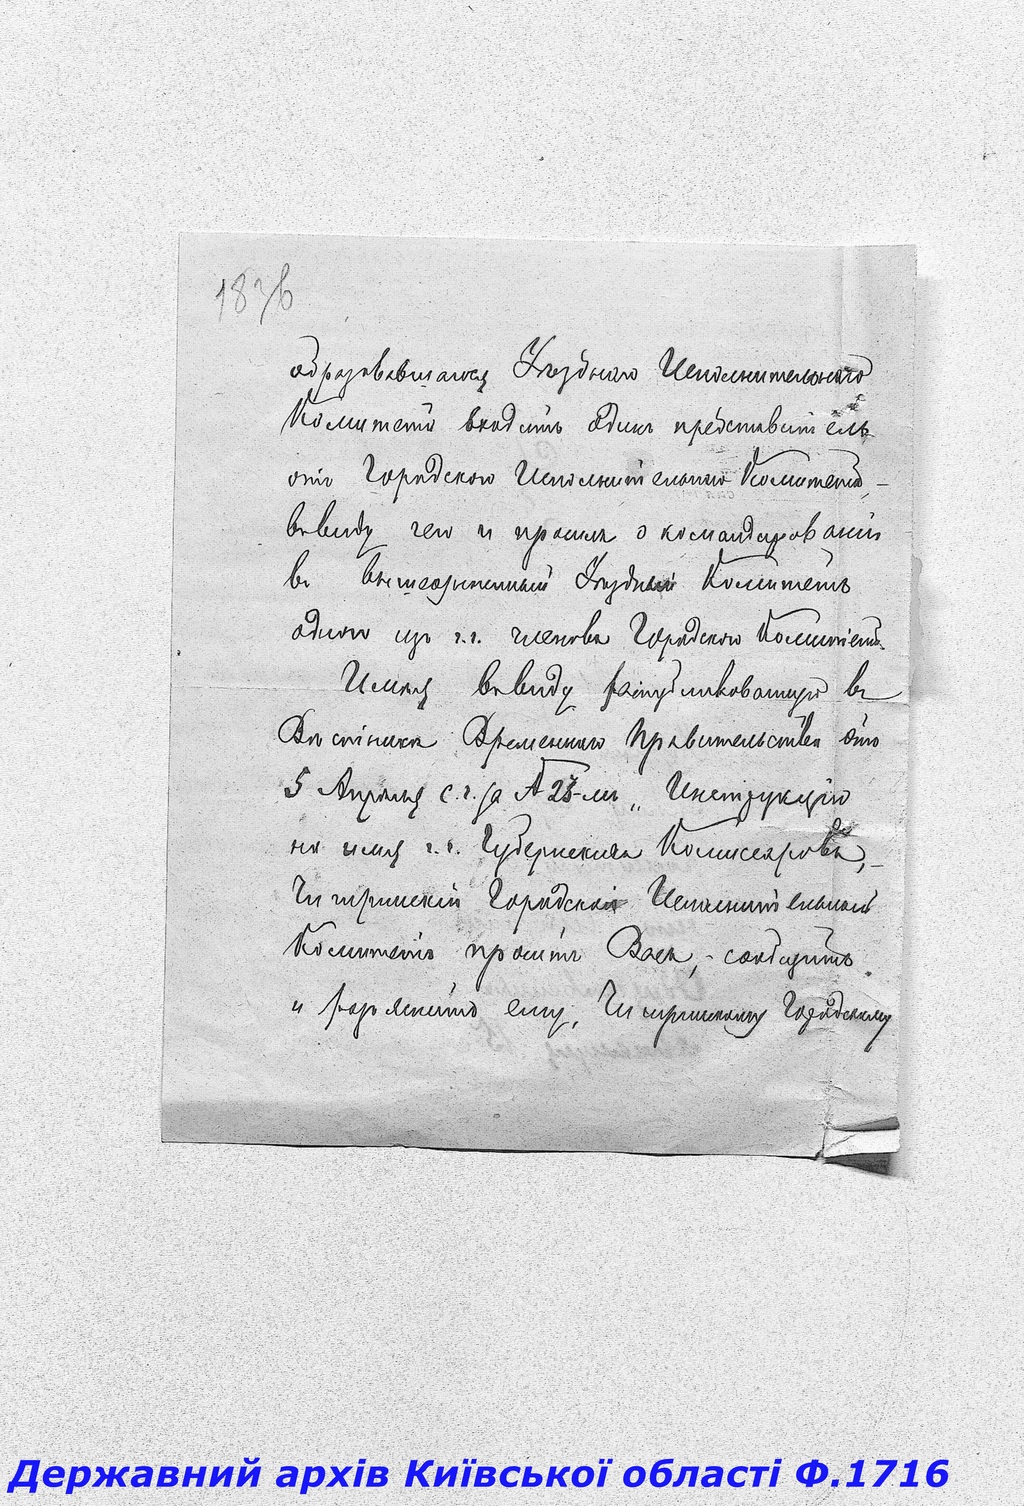 183б
образовавшагося Уѣзднаго Исполнительнаго
Комитета входитъ одинъ представитель
отъ Городского Исполнительнаго Комитета, –
ввиду чего и просим о командировании
въ вышеозначенный Уѣздный Комитетъ
одного изъ г.г. членовъ Городского Комитета.
Имѣя ввиду опубликованную въ
Вѣстникѣ Временнаго Правительства отъ
5 Апрѣля с.г. за № 23-м „Инструкцію
на имя г.г. Губернскихъ Комиссаровъ, –
Чигиринскій Городской Исполнительный
Комитетъ проситъ Васъ, – сообщить
и разъяснить ему, Чигиринскому Городскому
Державний архів Київської області Ф.1716